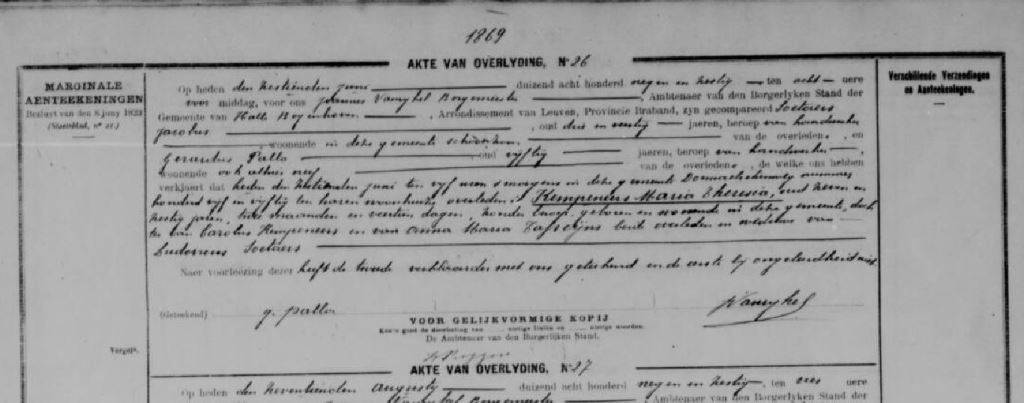 1869
AKTE VAN OVERLYDING, N° 26
MARGINALE
AENTEEKENINGEN
Besluit van den 8 juny 1823
(Staatsblad, n° 21.)
Op heden den zestienden juni duizend acht honderd negen en zestig ten acht uere
voor middag, voor ons Joannes Borgemeester, Ambtenaer van den Borgerlyken Stand der
Gemeente van Halle Boyenhoven, Arrondissement van Leuven, Provincie Braband, zyn gecompareerd Soetaers
Jacobus, oud drie en zestig jaeren, beroep van
woonende in deze gemeente schoon van de overledene, en
Gerardus Palla, oud vyftig jaeren, beroep van handwerker,
woonende ook alhier neef van de overledene, de welke ons hebben
verklaert dat heden den zestienden juni ten vyf uren smorgens in deze gemeente nummer
honderd vyf en vyftig ten haren woonhuize overleden is Kempeneers Maria Theresia, oud
zestig jaren, twee maanden en dagen, zonder geboren en wonende in deze gemeente, doch-
ter van Carolus Kempeneers en van Anna Maria beide overleden en weduwe van
Ludovicus Soetaers
Naer voorlezing dezer heeft de tweede verklaarder met ons geteekend en de eerste bij ongeleerdheid niet.
(Geteekend) g. palla
VOOR GELIJKVORMIGE KOPIJ
De Ambtenaer van den Borgerlijken Stand.
Vergel°.
Verschillende Verzendingen
en Aanteekeningen.
AKTE VAN OVERLYDING, N° 27
Op heden den zeventienden Augusty duizend acht honderd negen en zestig, ten vier uere
Borgemeester Ambtenaer van den Borgerlyken Stand der